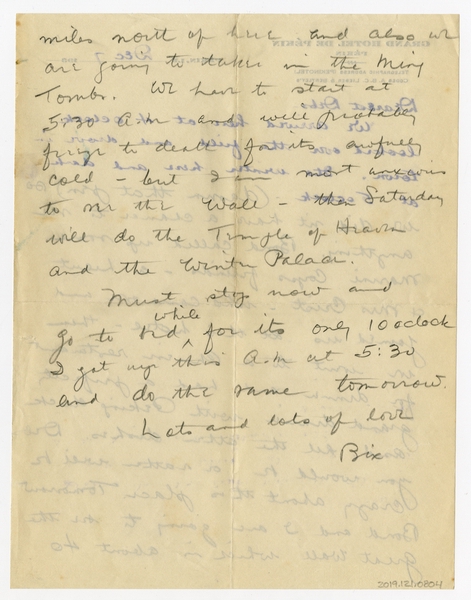 miles north of here and also we
are going to take in the Ming
Tombs. We have to start at
5:30 A.M and will probably
freeze to death for its awfully
cold - but I am most anxious
to see the Wall - then Saturday
will do the Temple of Heaven
and the Winter Palace.
Must stop now and
go to bed, while for its only 10 oclock
I got up this A.M at 5:30
and do the same tomorrow.
Lots and lots of love
Bix
2019.12.10804